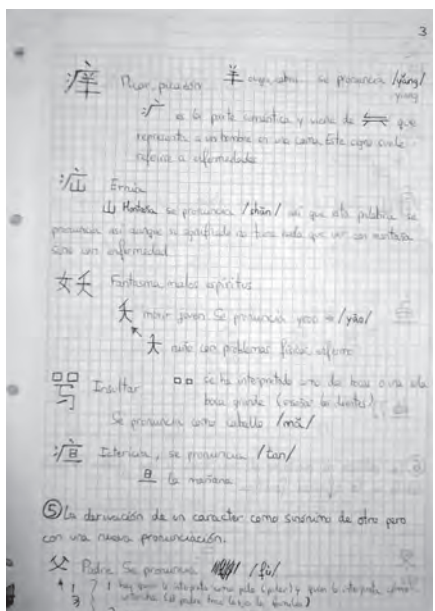 3
痒 Picor, picazón 羊 oveja, cabra se pronuncia /yáng/
yiang
疒 es la parte semántica y viene de que
representa a un hombre en una cama. Este signo suele
referirse a enfermedades
疝 Ernia
山 Montaña se pronuncia /shān/ así que esta palabra se
pronuncia así aunque su significado no tiene nada que ver con montaña
sino con enfermedad
妖 Fantasma malos espíritus
夭 morir joven Se pronuncia yao → /yāo/
夭 niño con problemas físicos enfermo
Insultar □□ se ha interpretado como dos bocas o una sola
boca grande (enseñar los dientes)
Se pronuncia como caballo /mǎ/
疸 Ictericia, se pronuncia /tan/
旦 la mañana
⑤ La derivación de un caracter como sinónimo de otro pero
con una nueva pronunciación.
父 Padre Se pronuncia /fù/
1 hay quien lo interpreta como palo y quien lo interpreta como
antorcha (el padre trae la luz a la familia)